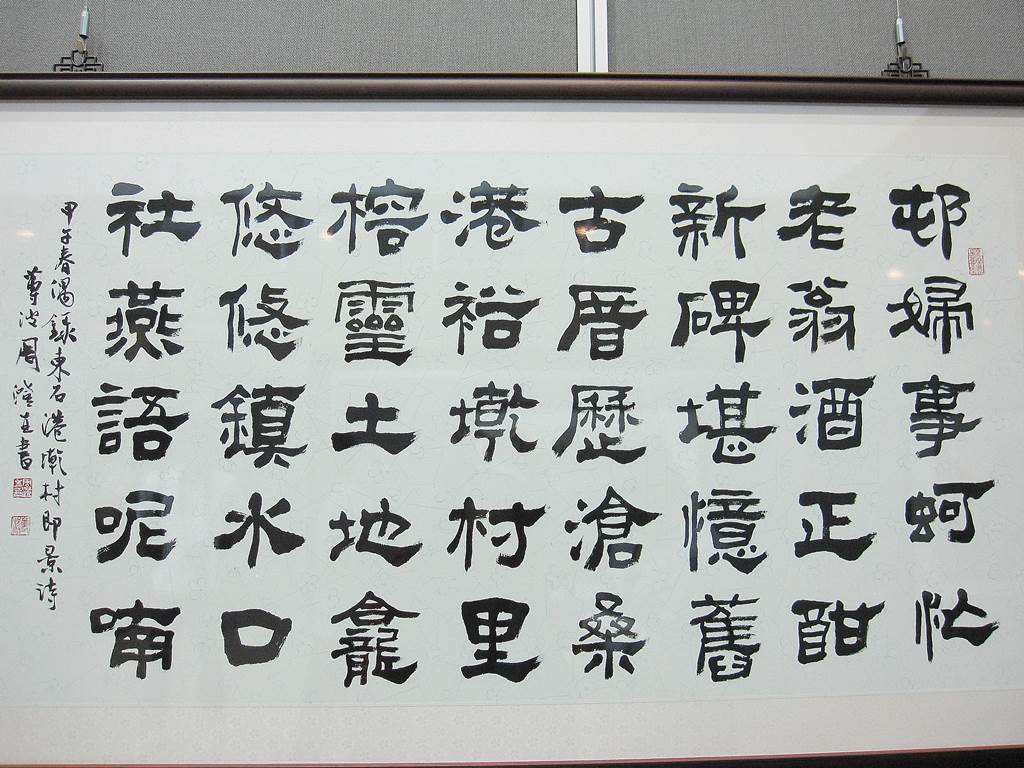 邨婦事蚵忙
老翁酒正酣
新碑堪憶舊
古厝歷滄桑
港裕墘村里
榕靈土地龕
悠悠鎮水口
社燕語呢喃
甲午春偶錄東石港墘村即景詩
周
書